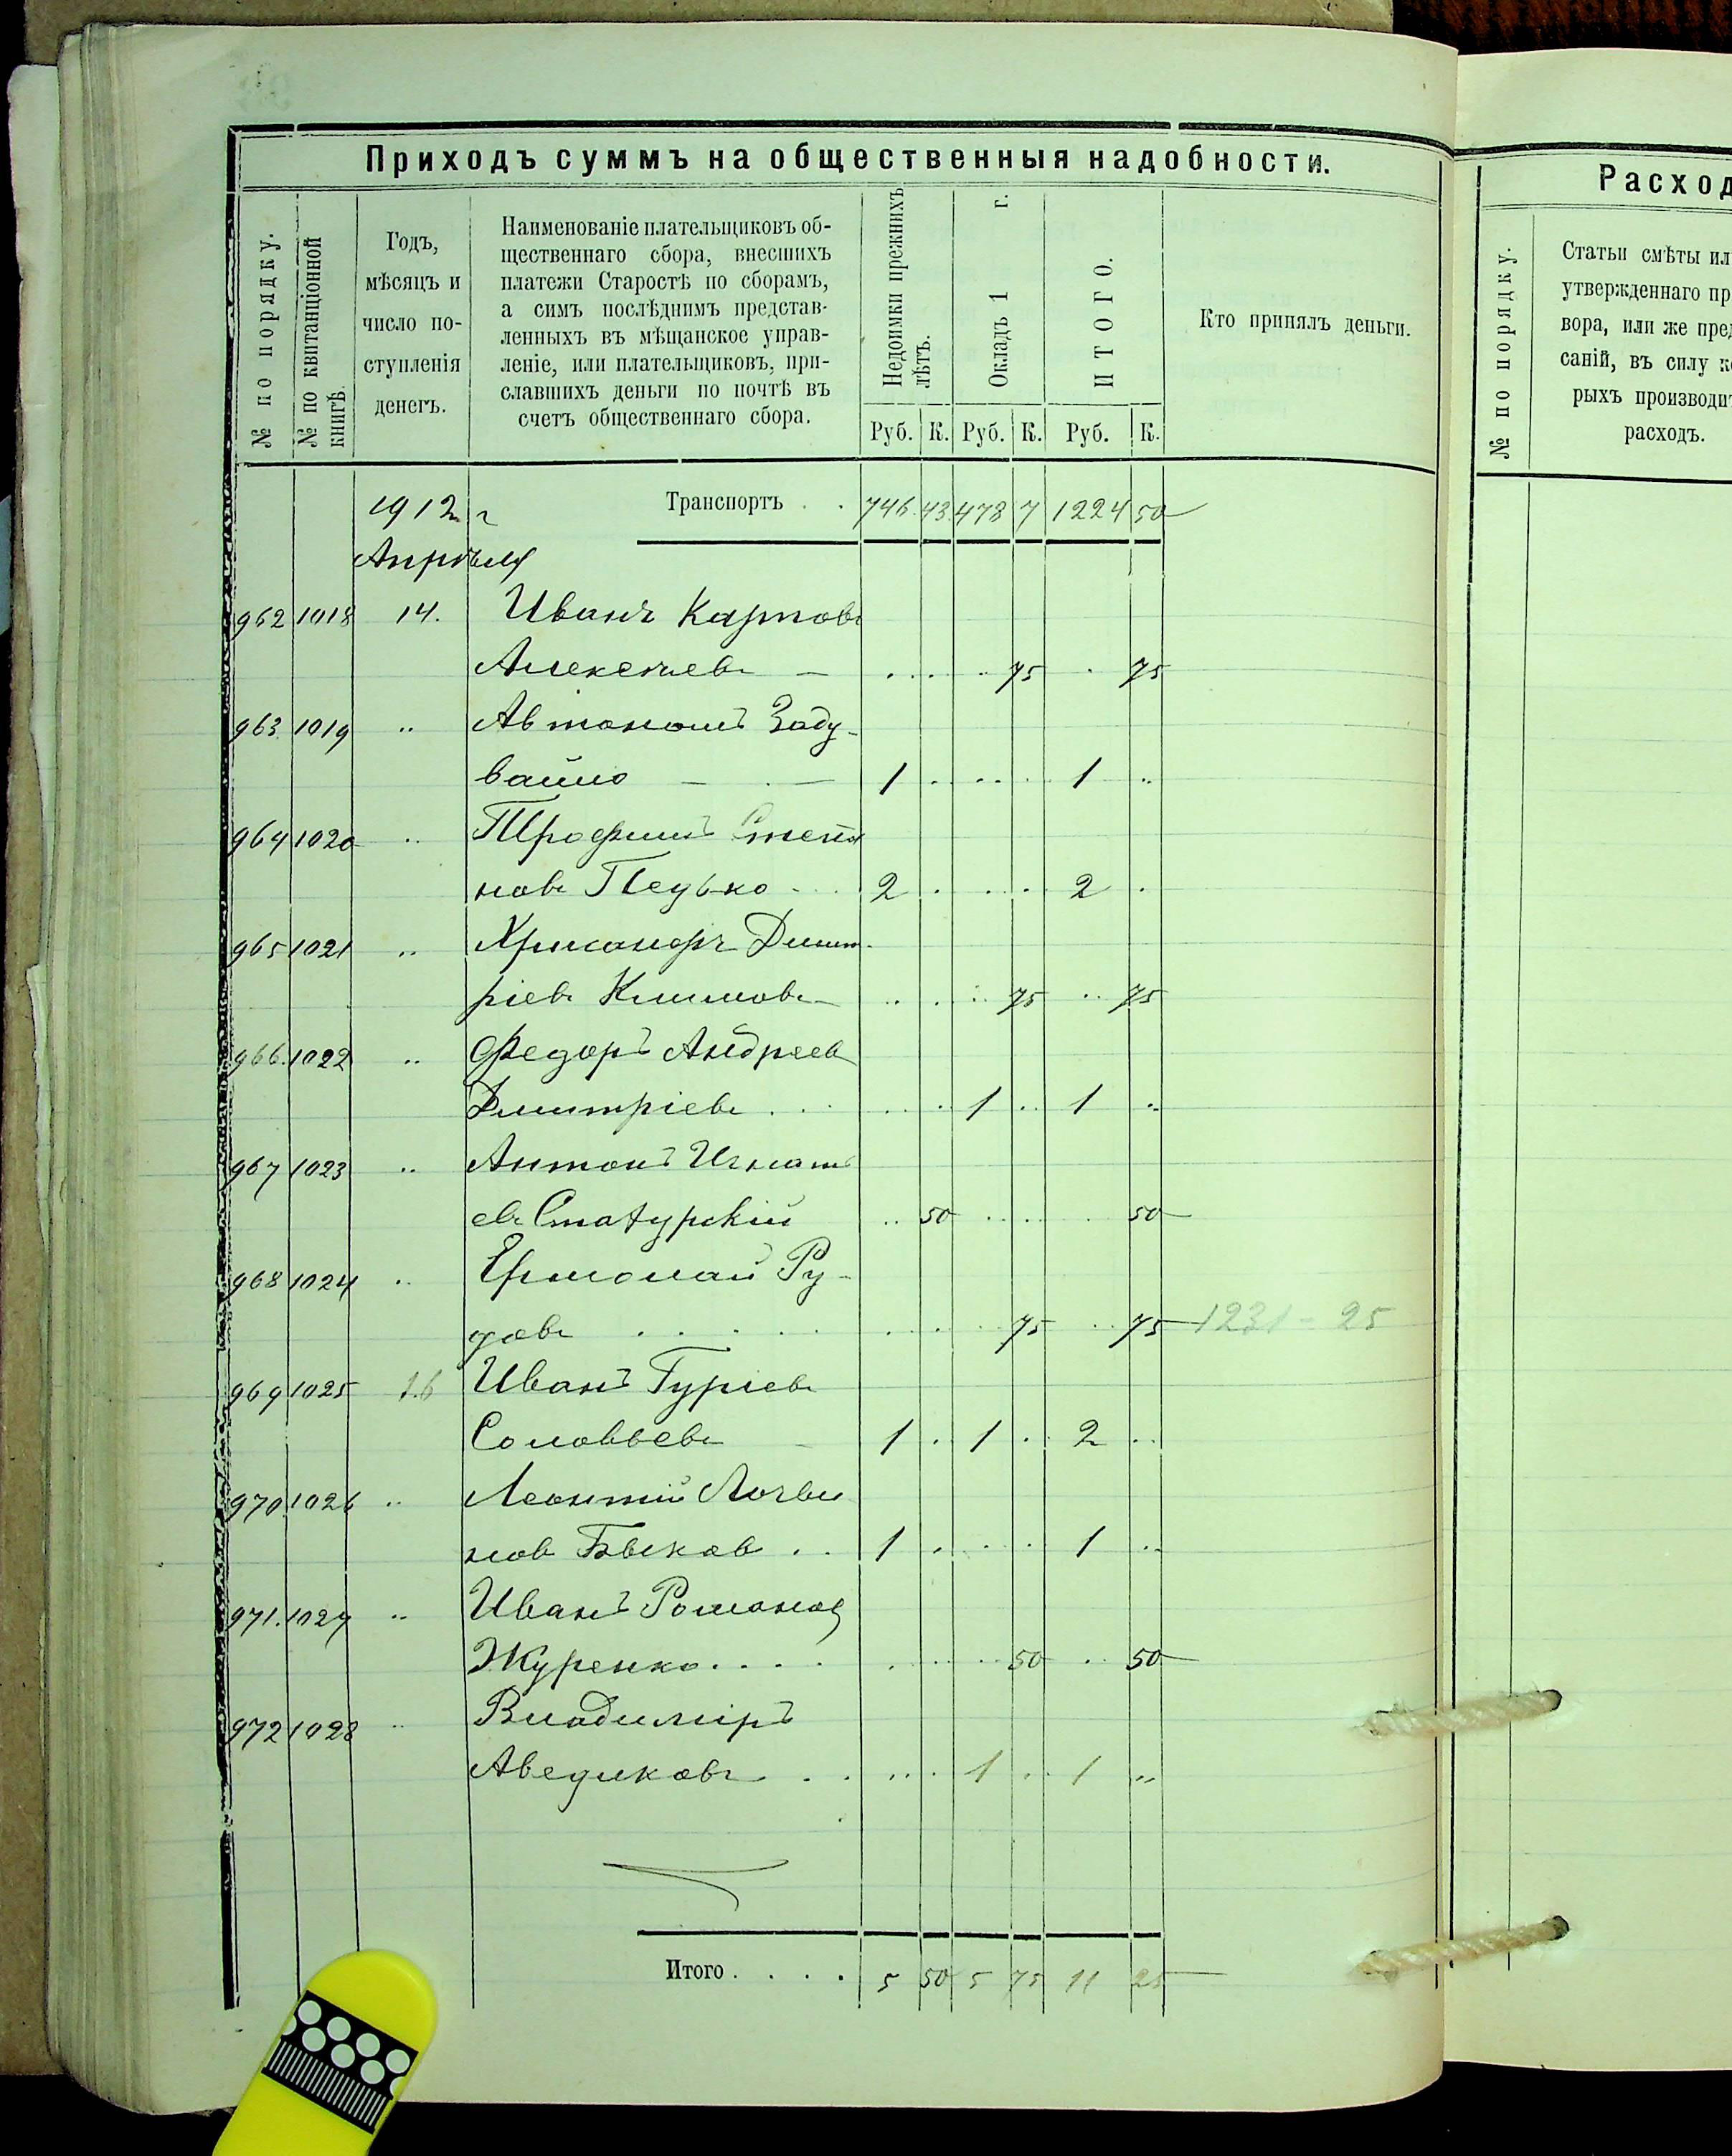 Приходъ суммъ на общественныя надобности.
№ по порядку.
№ по квитанціонной
книгѣ.
Годъ,
мѣсяцъ и
число по-
ступленія
денегъ.
Наименованіе плательщиковъ об-
щественнаго сбора, внесшихъ
платежи Старостѣ по сборамъ,
а симъ послѣднимъ представ-
ленныхъ въ мѣщанское управ-
леніе, или плательщиковъ, при-
славшихъ деньги по почтѣ въ
счетъ общественнаго сбора.
Недоимки прежнихъ
лѣтъ.
Окладъ 1 г.
ИТОГО.
Кто принялъ деньги.
Руб. К. Руб. К. Руб. К.
1912 г Транспортъ . . 746 43 478 7 1224 50
Апрѣля
962 1018 14. Иванъ Карповъ
Алексѣевъ — 75 75
963 1019 " Автономъ Заду-
вайло — 1 1 "
964 1020 " Трофимъ Степа
новъ Педько 2 2
965 1021 " Хрисанфъ Димит-
ріевъ Климовъ 75 75
966 1022 " Федоръ Андреев
Димитріевъ 1 1 "
967 1023 " Антонъ Игнать
евъ 50 50
968 1024 " Ермолай Ру-
довъ 75 75 1231 - 25
969 1025 16 Иванъ Гуріевъ
Соловьевъ 1 1 2
970 1026 " Леонтій Логви
нов Быков 1 1 "
971. 1027 " Иванъ Романов
Журенко 50 50
972 1028 " Владиміръ
Аведиковъ 1 1 "
Итого . . . . 5 50 5 75 11 25
Расход
№ по порядку.
Статьи смѣты ил
утвержденнаго пр
вора, или же пред
саній, въ силу ко
рыхъ производит
расходъ.